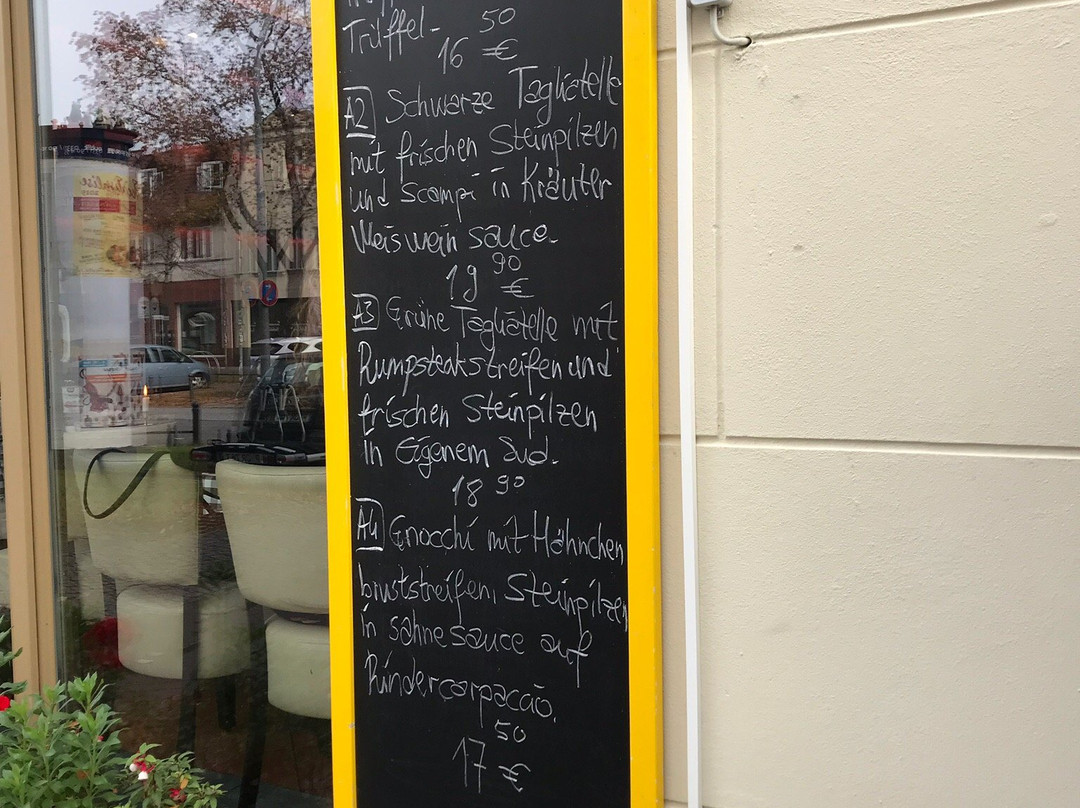 Trüffel-
16 50 €
A2 Schwarze Tagliatelle
mit frischen Steinpilzen
und Scampi in Kräuter
Weiswein sauce.
19 90 €
A3 Grüne Tagliatelle mit
Rumpsteakstreifen und
frischen Steinpilzen
In Eigenem Sud.
18 90
A4 Gnocchi mit Hähnchen
bruststreifen, Steinpilzen
in sahnesauce auf
Rindercarpaccio.
17 50 €